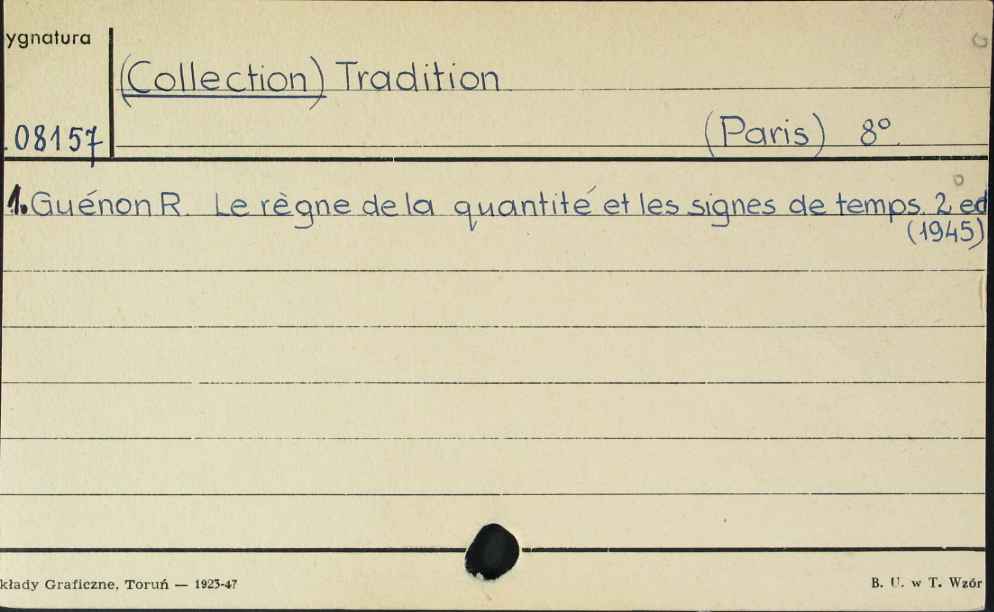 ygnatura
(Collection) Tradition
08157
(Paris) 8°
1. Guénon R. Le règne de la quantité et les signes de temps. 2 ed
(1945)
kłady Graficzne, Toruń — 1923-47
B. U. w T. Wzór